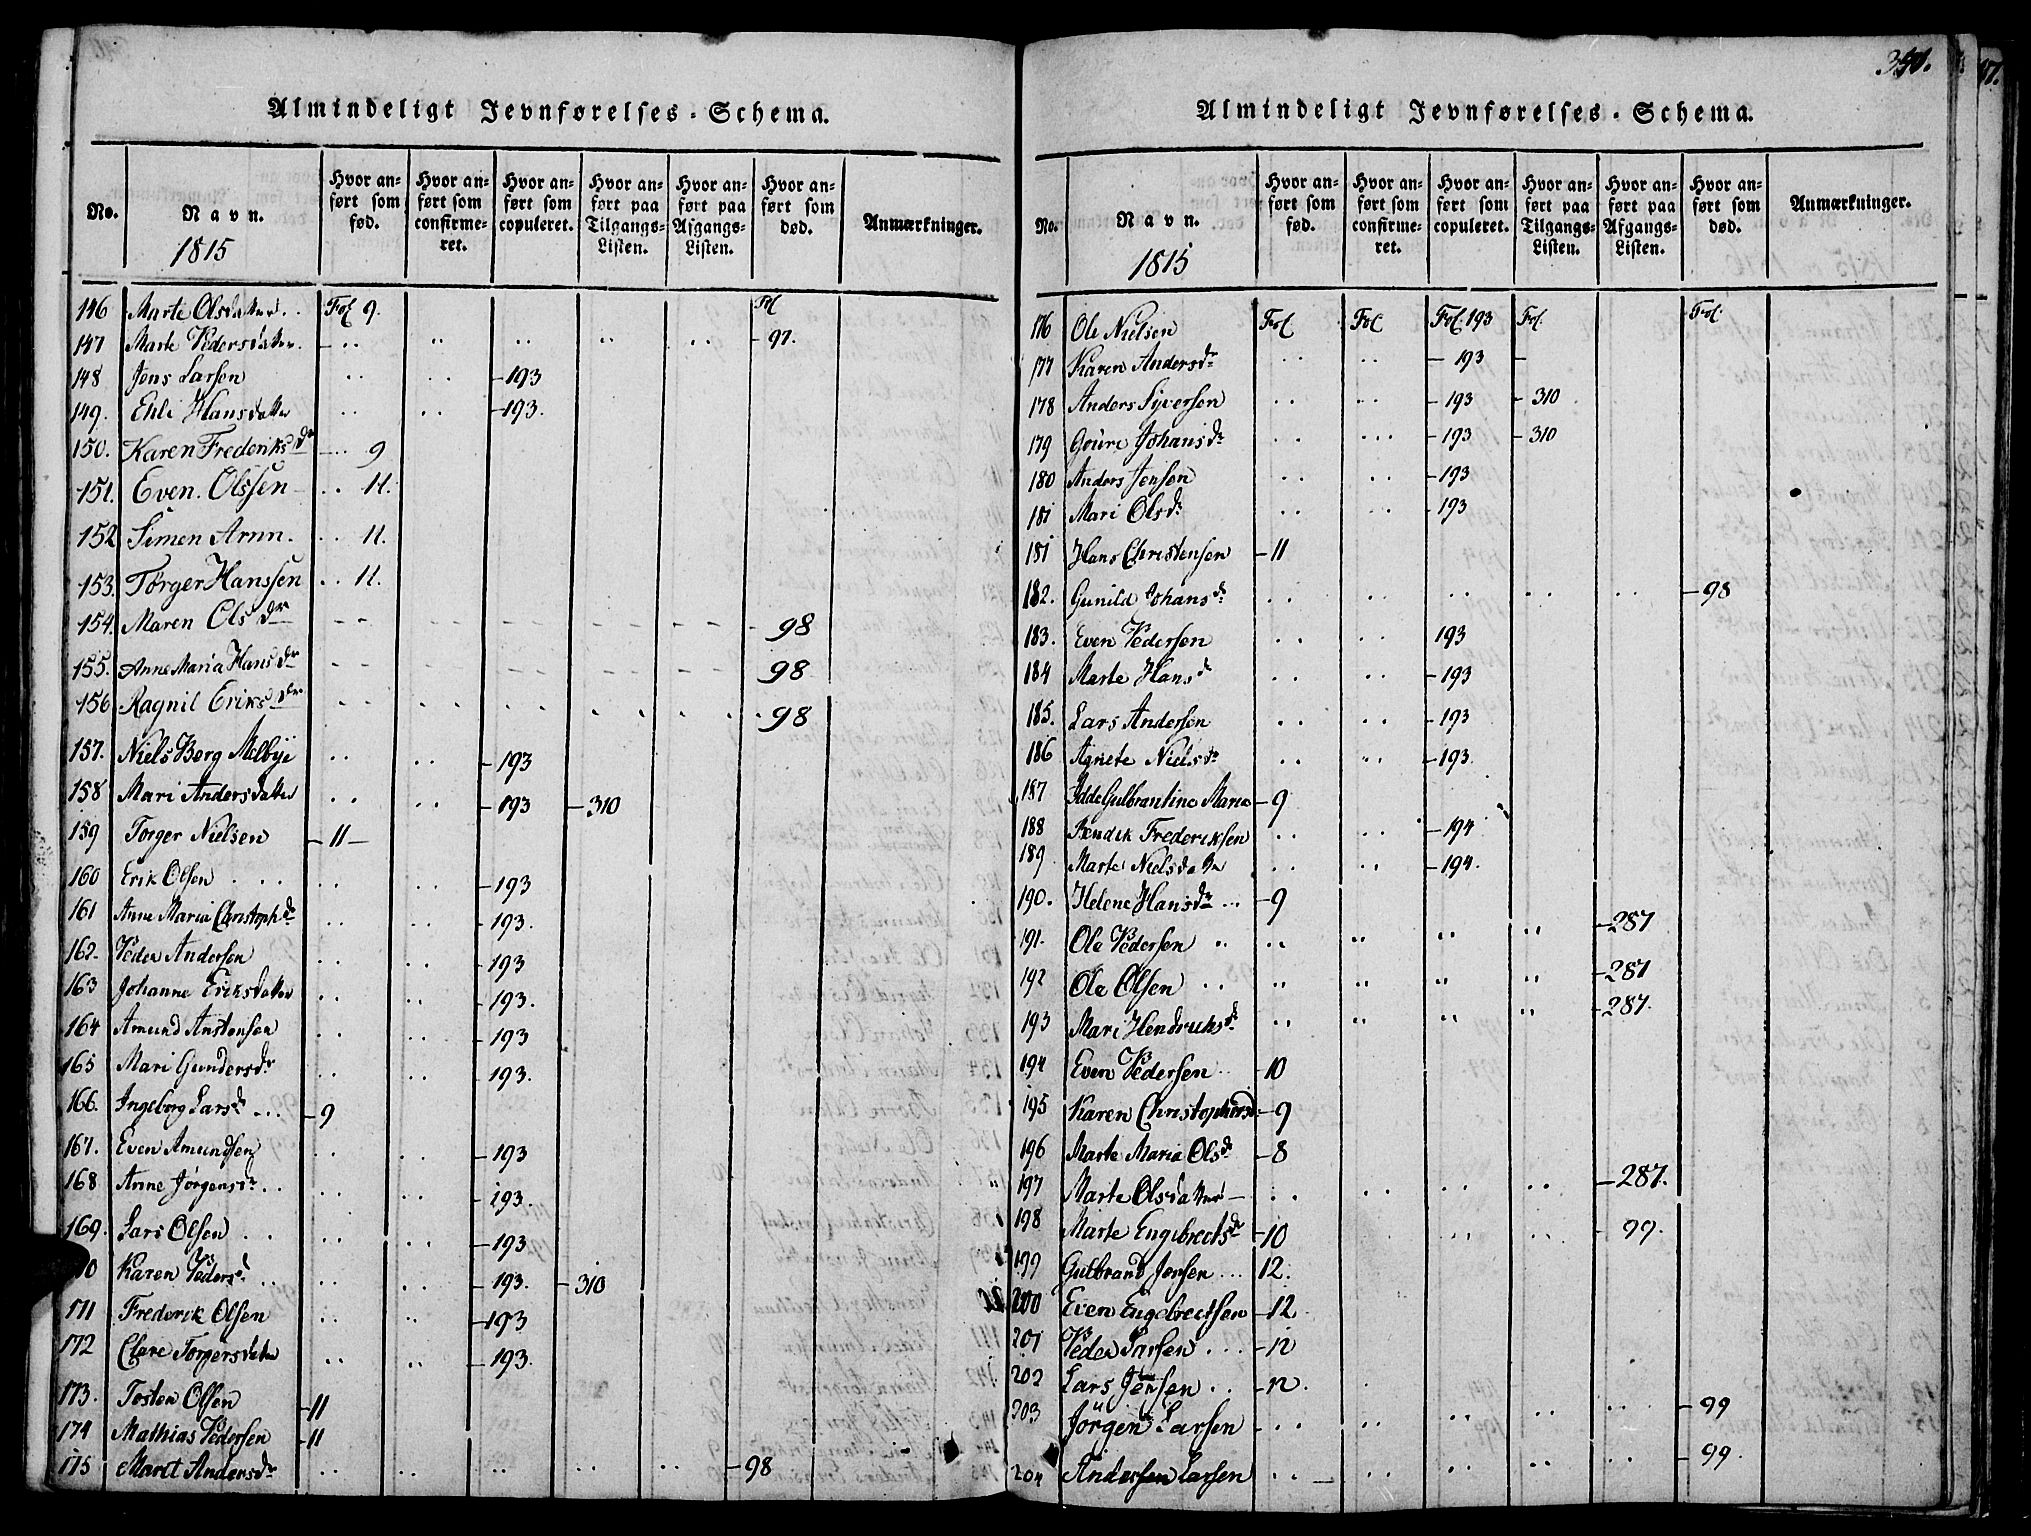 Almindeligt Jevnførelses-Schema.
No. Navn. 1815 Hvor anført som fød. Hvor anført som confirmeret. Hvor anført som copuleret. Hvor anført paa Tilgangs-Listen. Hvor anført paa Afgangs-Listen. Hvor anført som død. Anmærkninger.
146 Marte Olsdatter.. Fol 9. Fol
147 Marte Pedersdatter. - .. .. .. .. .. - 97.
148 Jens Larsen .. .. - 193
149. Ehli Hansdatter .. .. - 193.
150. Karen Frederiks dr .... 9
151. Even. Olssen .. 11.
152 Simen Arnn. .. 11.
153. Törger Hanssen .. 11.
154. Maren Ols dr 98
155. Anne Maria Hans dr 98
156 Ragnil Eriks dr - 98
157. Niels Berg Melbye .. .. - 193
158 Mari Andersdatter .. .. - 193 - 310
159 Torger Nielsen - 11 -
160 Erik Olsen .... .. .. - 193
161 Anne Maria Christoph dr .. .. - 193.
162. Peder Andersen .. .. - 193
163 Johanne Eriksdatter .. .. - 193.
164 Amund Anstensen .. .. - 193
165 Mari Gunders dr .. .. - 193.
166. Ingeborg Lars dr ... - 9
167. Even Amundsen .. .. - 193
168 Anne Jörgens dr .. .. .. - 193.
169. Lars Olsen .. .. .. - 193
Karen Peders d .. .. .. - 193. - 310
171 Frederik Olsen .. .. - 193
172 Clare Torgersdatter .. .. - 193.
173. Tosten Olsen - 11
174 Mathias Pedersen - 11
175 Marit Anders dr .. .. .. .. .. - 98
Almindeligt Jevnførelses-Schema.
No. Navn. 1815 Hvor anført som fød. Hvor anført som confirmeret. Hvor anført som copuleret. Hvor anført paa Tilgangs-Listen. Hvor anført paa Afgangs-Listen. Hvor anført som død. Anmærkninger.
176 Ole Nielsen Fol Fol Fol. 193 Fol. Fol.
177 Karen Anders dr .. .. - 193 -
178 Anders Syversen .. .. - 193 - 310
179 Goüre Johans dr .. ... - 193 - 310
180 Anders Jensen .. .. - 193
181 Mari Ols dr .. .. - 193
181 Hans Christensen - 11
182. Gunild Johans dr .. .. .. .. .. - 98
183. Even Pedersen .. .. 193
184 Marte Hans d .. .. - 193
185. Lars Andersen .. .. - 193
186 Agnete Niels dr .. .. - 193.
187 Idde Gulbrantine Maria - 9
188 Hendik Frederiksen .. .. - 194
189 Marte Nielsdatter .. .. - 194.
190. Helene Hans dr ... - 9
191. Ole Pedersen .. .. .. .. .. - 287
192 Ole Olsen .. .. .. .. .. - 287
193 Mari Hendriks dr .. .. .. .. - 287.
194 Even Pedersen .. - 10
195 Karen Christophers d - 9
196 Marte Maria Ols dr - 8
197 Marte Olsdatter - .. .. .. .. - 287.
198 Marte Engebrects dr - 10 99.
199 Gulbrand Jensen ... 12.
200 Even Engebrectsen - 12
201 Peder Larsen ... - 12
202 Lars Jensen .. - 12.
203 Jörgen Larsen - .. .. .. .. .. - 99
204 Andersen Larsen .. .. .. .. .. - 99.